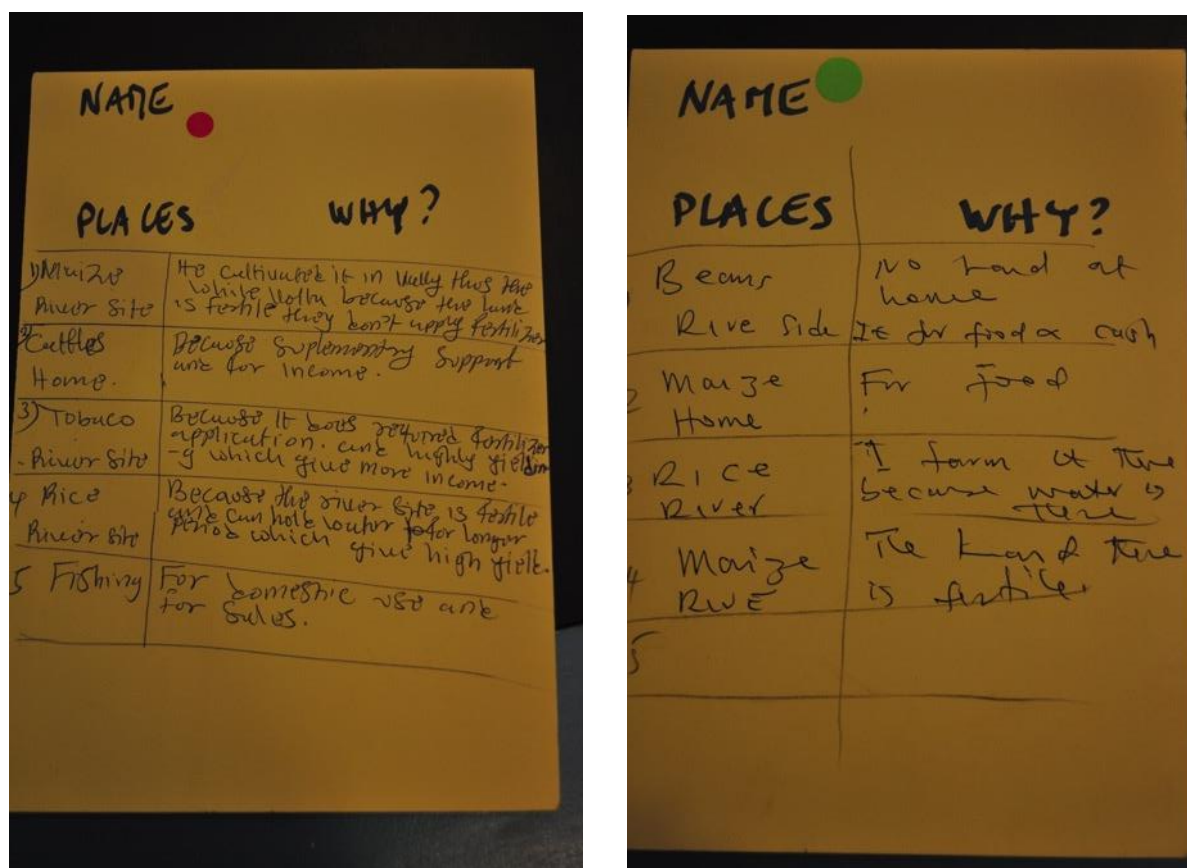 NAME
PLACES WHY?
1) Maize
River Site
He cultivated it in vally thus the
white Volta because the land
is fertile they don't apply fertilizer
2) Cattles
Home.
Because suplementry support
and for income.
3) Tobaco
- River Site
Because it does required fertilizer
application. and highly yieldin
-g which give more income.
4 Rice
River Site
Because the river site is fertile
and can hold water for longer
period which give high yield.
5 Fishing
For domestic use and
for sales.
NAME
PLACES WHY?
Beans
Rive Side
No land at
home
It for food & cash
2 Maize
Home
For food
3 Rice
River
I farm it there
because water is
there
4 Maize
RIVE
The land there
is fertile
5